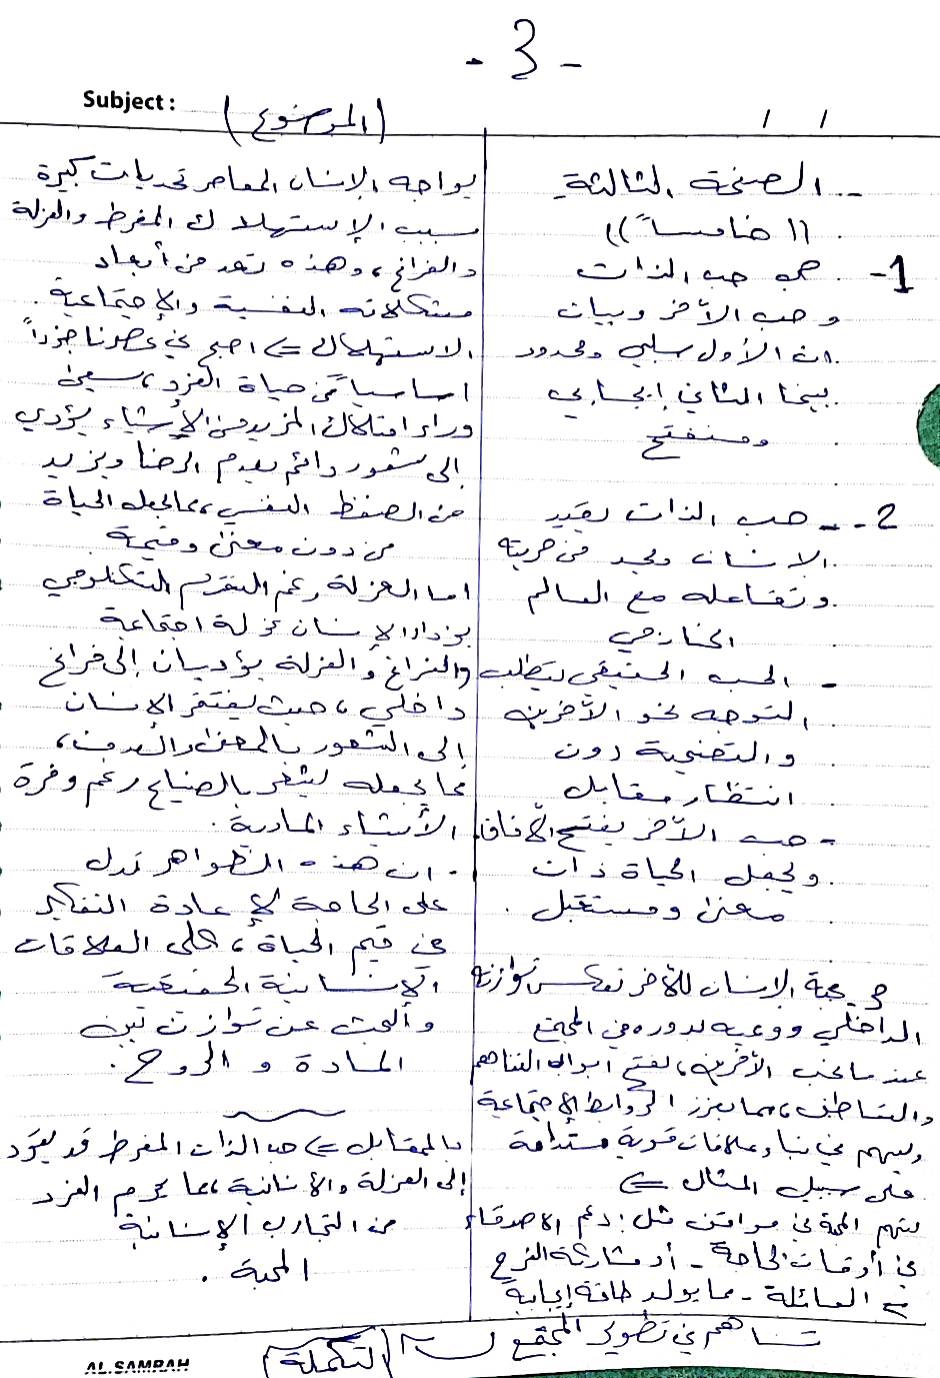 - 3 -
Subject :
/ /
(الموضوع)
-- الصفحة الثالثة
((خامساً))
1- هي حب الذات
وحب الآخر وبيان
ان الأول سلبي ومحدود
بينما الثاني إيجابي
ومنفتح
2-- حب الذات يقيد
الانسان ويحد من حريته
وتفاعله مع العالم
الخارجي
- الحب الحقيقي يتطلب
التوجه نحو الآخرين
والتضحية دون
انتظار مقابل
- حب الآخر يفتح الآفاق
ويجعل الحياة ذات
معنى ومستقبل .
3- محبة الإنسان للآخر تعكس توازنه
الداخلي ووعيه لدوره في المجتمع
عندما نحب الآخرين، نفتح أبواب التفاهم
والتعاطف، مما يعزز الروابط الإجتماعية
ويسهم في بناء علاقات قوية مستدامة
على سبيل المثال ⇐
تسهم المحبة في مواقف مثل: دعم الاصدقاء
في أوقات الحاجة - أو مشاركة الفرح
مع العائلة - مما يولد طاقة إيجابية
تساهم في تطوير المجتمع
يواجه الإنسان المعاصر تحديات كبيرة
بسبب الإستهلاك المفرط والعزلة
والفراغ، وهذه تعد من أبعاد
مشكلاته النفسية والإجتماعية .
الاستهلاك ⇐ اصبح في عصرنا جزءاً
اساسياً من حياة الفرد، سعيه
وراء امتلاك المزيد من الأشياء يؤدي
إلى شعور دائم بعدم الرضا ويزيد
من الضغط النفسي، مما يجعل الحياة
من دون معنى وقيمة.
اما العزلة رغم التقدم التكنلوجي
يزداد الإنسان عزلة اجتماعية
والفراغ والعزلة يؤديان إلى فراغ
داخلي، حيث يفتقر الإنسان
إلى الشعور بالمعنى والهدف،
مما يجعله يشعر بالضياع رغم وفرة
الأشياء المادية .
. ان هذه الظواهر تدل
على الحاجة لإعادة التفكير
في قيم الحياة، على العلاقات
الإنسانية الحقيقية
والبحث عن توازن بين
المادة و الروح .
بالمقابل ⇐ حب الذات المفرط قد يقود
إلى العزلة والأنانية، مما يحرم الفرد
من التجارب الإنسانية
المحبة .
(التكملة)
AL.SAMRAH